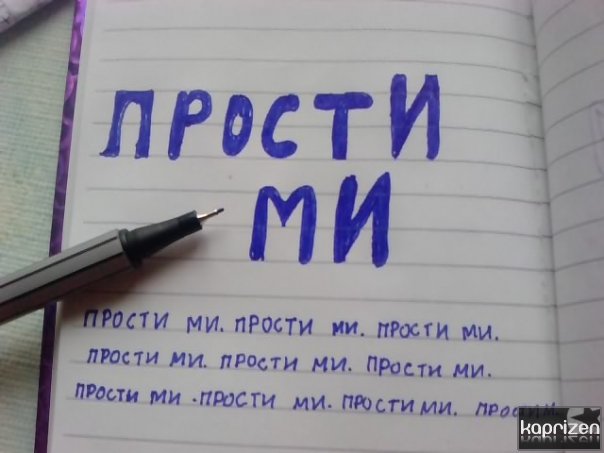 ПРОСТИ
МИ
ПРОСТИ МИ. ПРОСТИ МИ. ПРОСТИ МИ.
ПРОСТИ МИ. ПРОСТИ МИ. ПРОСТИ МИ.
ПРОСТИ МИ. ПРОСТИ МИ. ПРОСТИ МИ. ПРОСТИ М
kaprizen